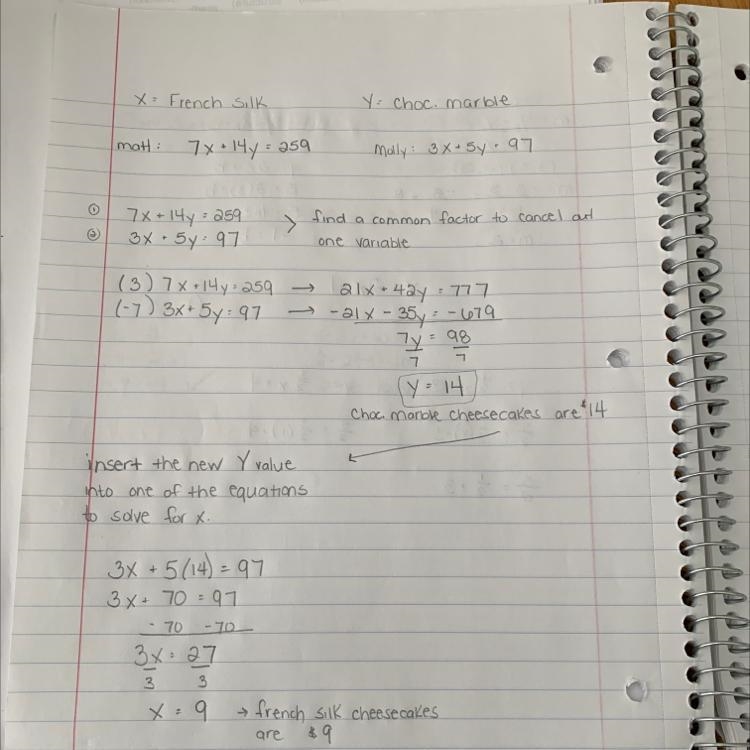 X = French Silk    Y = Choc. marble
matt: 7x + 14y = 259    Mally: 3x + 5y = 97
① 7x + 14y = 259 > find a common factor to cancel out
② 3x + 5y = 97 one variable
(3) 7x + 14y = 259 → 21x + 42y = 777
(-7) 3x + 5y = 97 → -21x - 35y = -679
7y = 98
7    7
y = 14
Choc. marble cheesecakes are $14
insert the new Y value
into one of the equations
to solve for x.
3x + 5(14) = 97
3x + 70 = 97
- 70    -70
3x = 27
3    3
x = 9 → french silk cheesecakes
are $9